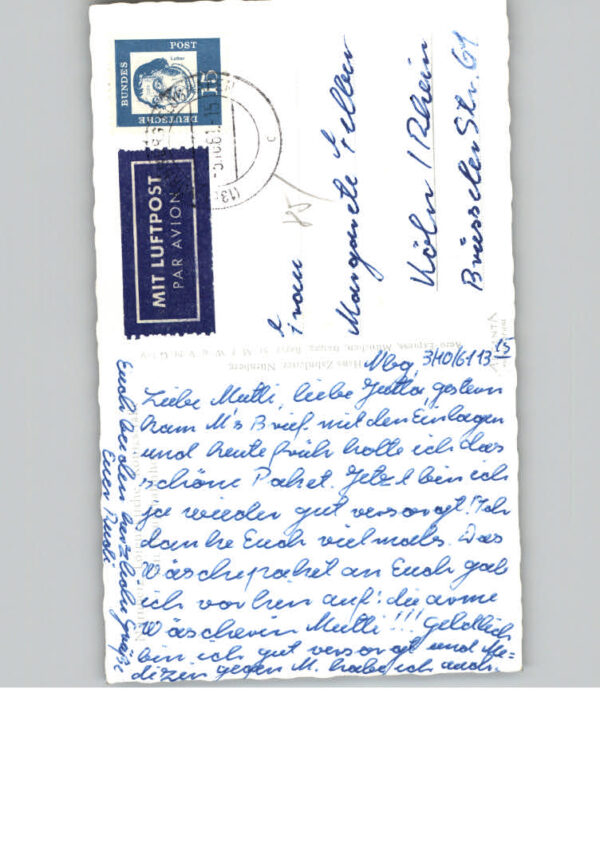 DEUTSCHE
BUNDES
POST
15
Luther
MIT LUFTPOST
PAR AVION
85
Frau
Margarete
Köln / Rhein
Brüsseler Str. 61
Mbg, 3/10/61 13 15
Liebe Mutti, liebe Jutta, gestern
kam M's Brief mit den Einlagen
und heute früh holte ich das
schöne Paket. Jetzt bin ich
ja wieder gut versorgt! Ich
danke Euch vielmals. Das
Wäschepaket an Euch gab
ich vorhin auf: die arme
Wäscherin Mutti!!! geldlich
bin ich gut versorgt und Me-
dizin gegen M. habe ich auch.
Euch beiden herzliche Grüße
Euer